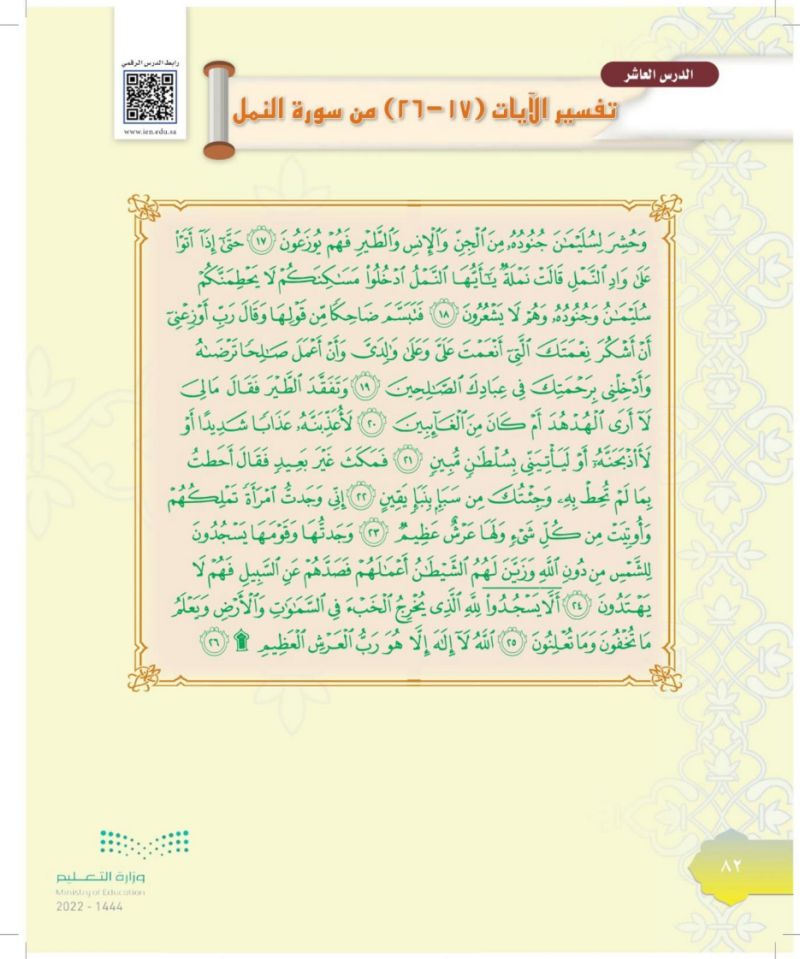 رابط الدرس الرقمي
www.ien.edu.sa
الدرس العاشر
تفسير الآيات (١٧-٢٦) من سورة النمل
وَحُشِرَ لِسُلَيْمَٰنَ جُنُودُهُۥ مِنَ ٱلْجِنِّ وَٱلْإِنسِ وَٱلطَّيْرِ فَهُمْ يُوزَعُونَ ١٧ حَتَّىٰٓ إِذَآ أَتَوْا۟
عَلَىٰ وَادِ ٱلنَّمْلِ قَالَتْ نَمْلَةٌ يَٰٓأَيُّهَا ٱلنَّمْلُ ٱدْخُلُوا۟ مَسَٰكِنَكُمْ لَا يَحْطِمَنَّكُمْ
سُلَيْمَٰنُ وَجُنُودُهُۥ وَهُمْ لَا يَشْعُرُونَ ١٨ فَتَبَسَّمَ ضَاحِكًا مِّن قَوْلِهَا وَقَالَ رَبِّ أَوْزِعْنِىٓ
أَنْ أَشْكُرَ نِعْمَتَكَ ٱلَّتِىٓ أَنْعَمْتَ عَلَىَّ وَعَلَىٰ وَٰلِدَىَّ وَأَنْ أَعْمَلَ صَٰلِحًا تَرْضَىٰهُ
وَأَدْخِلْنِى بِرَحْمَتِكَ فِى عِبَادِكَ ٱلصَّٰلِحِينَ ١٩ وَتَفَقَّدَ ٱلطَّيْرَ فَقَالَ مَالِىَ
لَآ أَرَى ٱلْهُدْهُدَ أَمْ كَانَ مِنَ ٱلْغَآئِبِينَ ٢٠ لَأُعَذِّبَنَّهُۥ عَذَابًا شَدِيدًا أَوْ
لَأَا۟ذْبَحَنَّهُۥٓ أَوْ لَيَأْتِيَنِّى بِسُلْطَٰنٍ مُّبِينٍ ٢١ فَمَكَثَ غَيْرَ بَعِيدٍ فَقَالَ أَحَطتُ
بِمَا لَمْ تُحِطْ بِهِۦ وَجِئْتُكَ مِن سَبَإٍۭ بِنَبَإٍ يَقِينٍ ٢٢ إِنِّى وَجَدتُّ ٱمْرَأَةً تَمْلِكُهُمْ
وَأُوتِيَتْ مِن كُلِّ شَىْءٍ وَلَهَا عَرْشٌ عَظِيمٌ ٢٣ وَجَدتُّهَا وَقَوْمَهَا يَسْجُدُونَ
لِلشَّمْسِ مِن دُونِ ٱللَّهِ وَزَيَّنَ لَهُمُ ٱلشَّيْطَٰنُ أَعْمَٰلَهُمْ فَصَدَّهُمْ عَنِ ٱلسَّبِيلِ فَهُمْ لَا
يَهْتَدُونَ ٢٤ أَلَّا يَسْجُدُوا۟ لِلَّهِ ٱلَّذِى يُخْرِجُ ٱلْخَبْءَ فِى ٱلسَّمَٰوَٰتِ وَٱلْأَرْضِ وَيَعْلَمُ
مَا تُخْفُونَ وَمَا تُعْلِنُونَ ٢٥ ٱللَّهُ لَآ إِلَٰهَ إِلَّا هُوَ رَبُّ ٱلْعَرْشِ ٱلْعَظِيمِ ۩ ٢٦
٨٢
وزارة التعليم
Ministry of Education
2022 - 1444